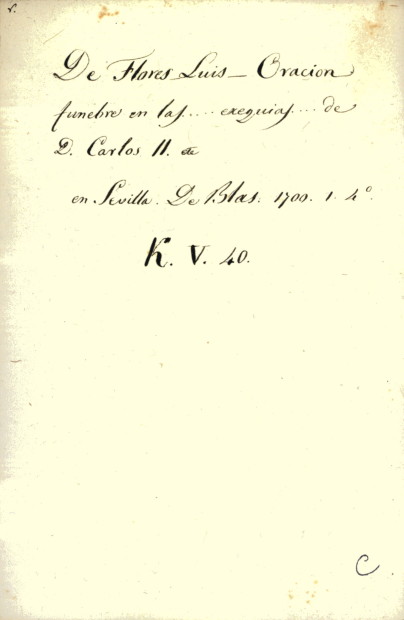 v.
De Flores Luis – Oracion
funebre en las .... exequias .... de
D. Carlos II. etc
en Sevilla. De Blas. 1700. 1. 4º.
K. V. 40.
C